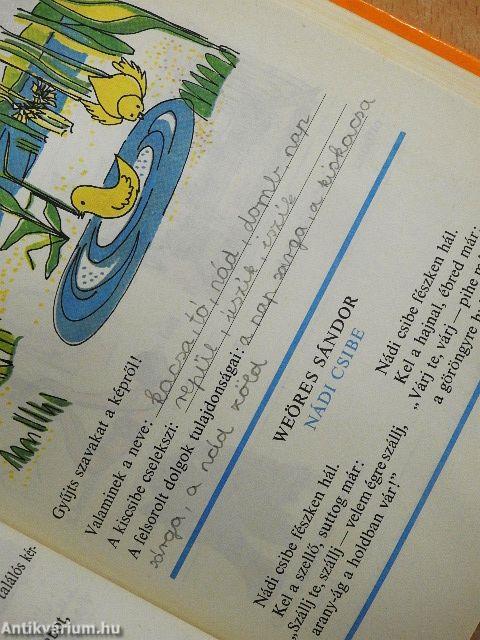 Gyűjts szavakat a képről!
Valaminek a neve: kacsa, tó, nád, domb, nap
A kiscsibe cselekszi: repül, úszik, iszik
A felsorolt dolgok tulajdonságai: a nap sárga, a kiskacsa
sárga, a nád zöld
WEÖRES SÁNDOR
NÁDI CSIBE
Nádi csibe fészken hál.
Kel a szellő, suttog már:
„Szállj te, szállj – velem égre szállj,
arany-ág a holdban vár!”
Nádi csibe fészken hál.
Kel a hajnal, ébred már:
„Várj te, várj – pihe
a göröngyre
találós kér-
Antikvárium.hu